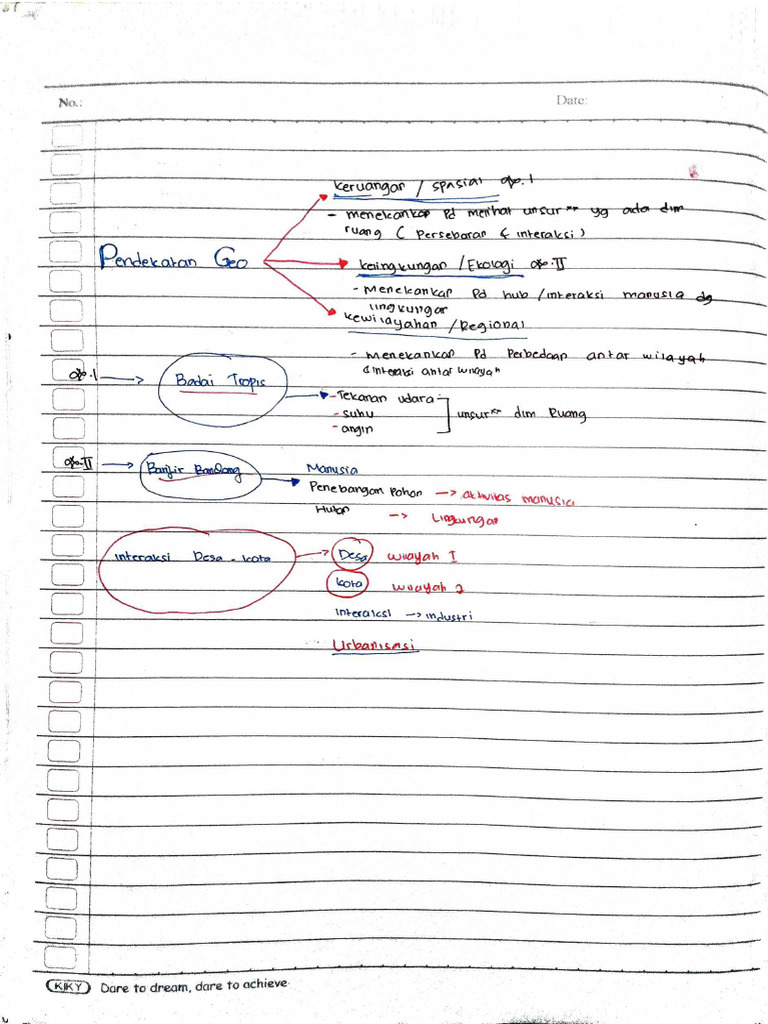 No.:
Date:
keruangan / spasial
- menekankan pd melihat unsur" yg ada dlm
ruang ( persebaran & interaksi )
Pendekatan Geo
kelingkungan / Ekologi
- Menekankan pd hub / interaksi manusia dg
lingkungan
kewilayahan / Regional
- Menekankan Pd Perbedaan antar wilayah
& interaksi antar wilayah
Badai Tropis
- Tekanan udara
- suhu
- angin
unsur" dlm Ruang
Banjir Bandang
Manusia
Penebangan Pohon → aktivitas manusia
Hutan → Lingkungan
Interaksi Desa - kota → Desa wilayah I
kota wilayah 2
Interaksi → industri
Urbanisasi
KIKY Dare to dream, dare to achieve